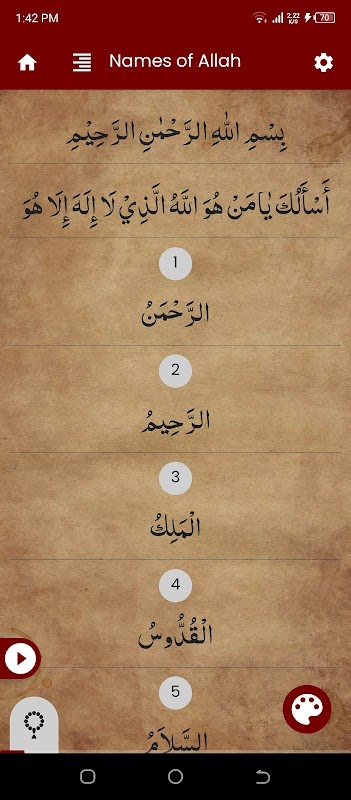 1:42 PM
2.22 K/S
70
Names of Allah
بِسْمِ اللهِ الرَّحْمٰنِ الرَّحِيْمِ
أَسْأَلُكَ يٰامَنْ هُوَ اللَّهُ الَّذِيْ لَا إِلَهَ إِلَا هُوَ
1
الرَّحْمَنُ
2
الرَّحِيمُ
3
الْمَلِكُ
4
الْقُدُّوسُ
5
السَّلاَمُ